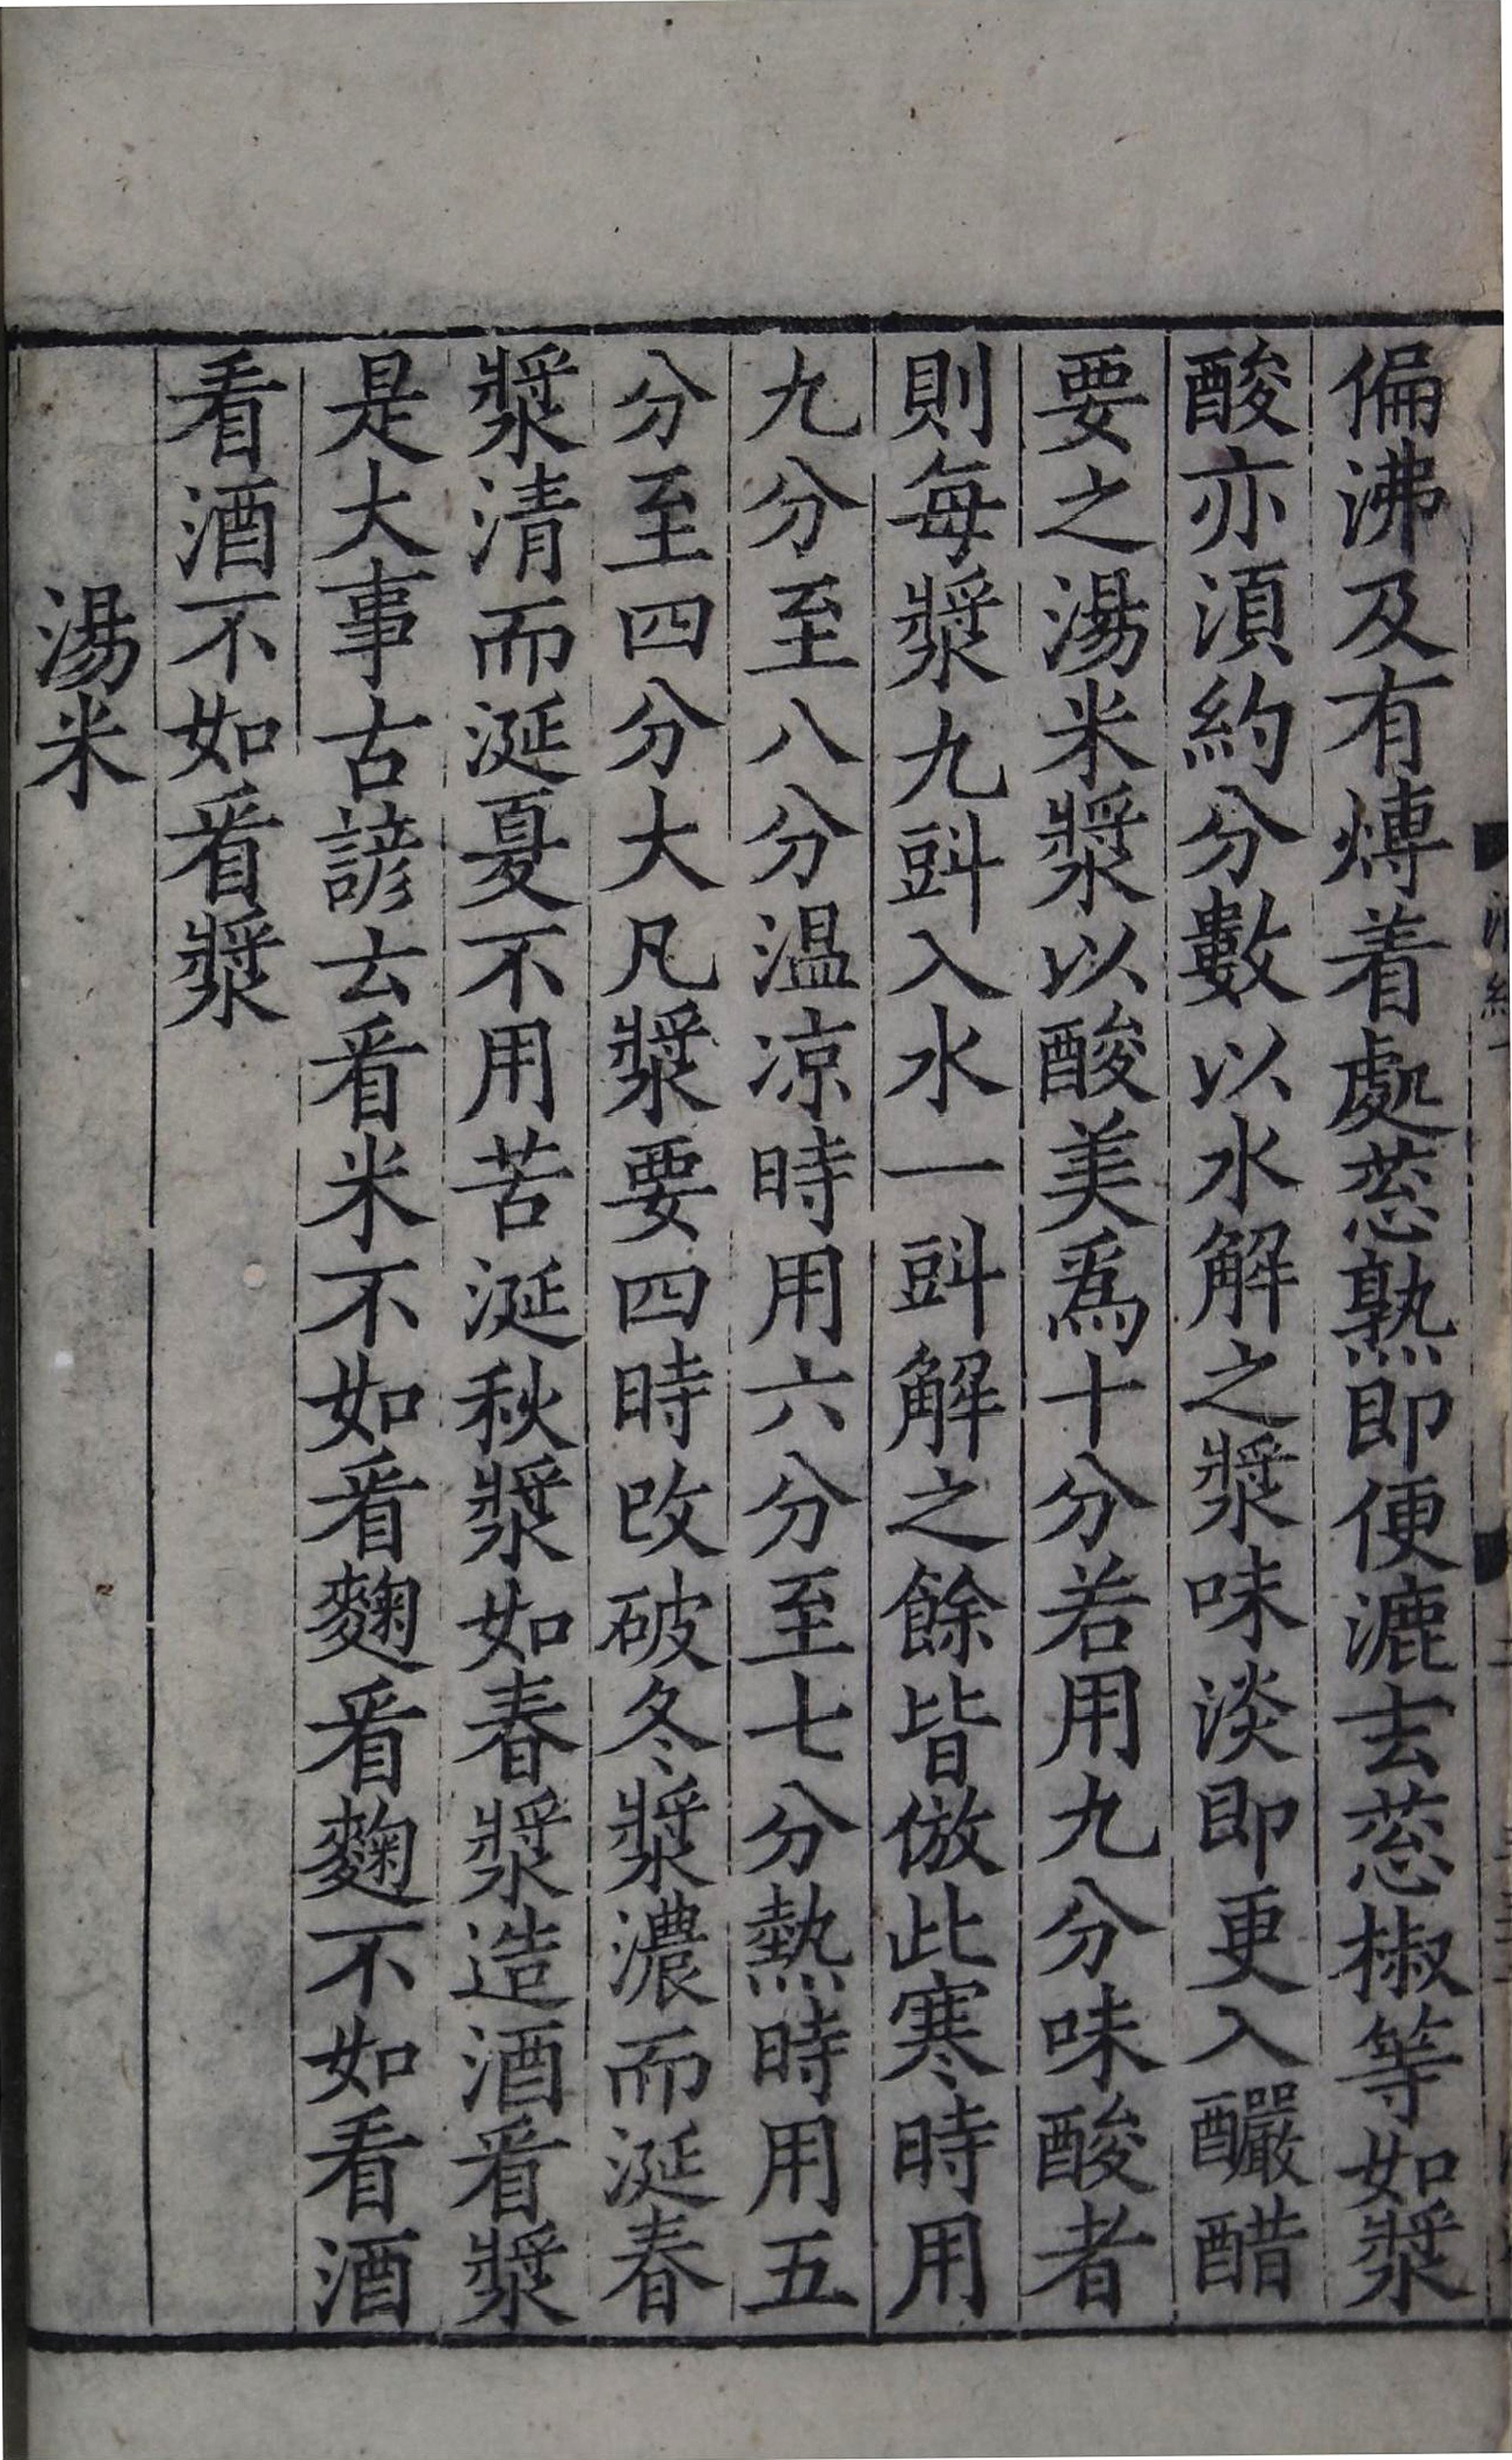 偏沸及有煿着處葱熟即便漉去葱椒等如漿
酸亦湏約分數以水解之漿味淡即更入釅醋
要之湯米漿以酸美爲十分若用九分味酸者
則每漿九㪷入水一㪷解之餘皆倣此寒時用
九分至八分温凉時用六分至七分熱時用五
分至四分大凡漿要四時改破冬漿濃而涎春
漿清而涎夏不用苦涎秋漿如春漿造酒看漿
是大事古諺云看米不如看麴看麴不如看酒
看酒不如看漿
湯米